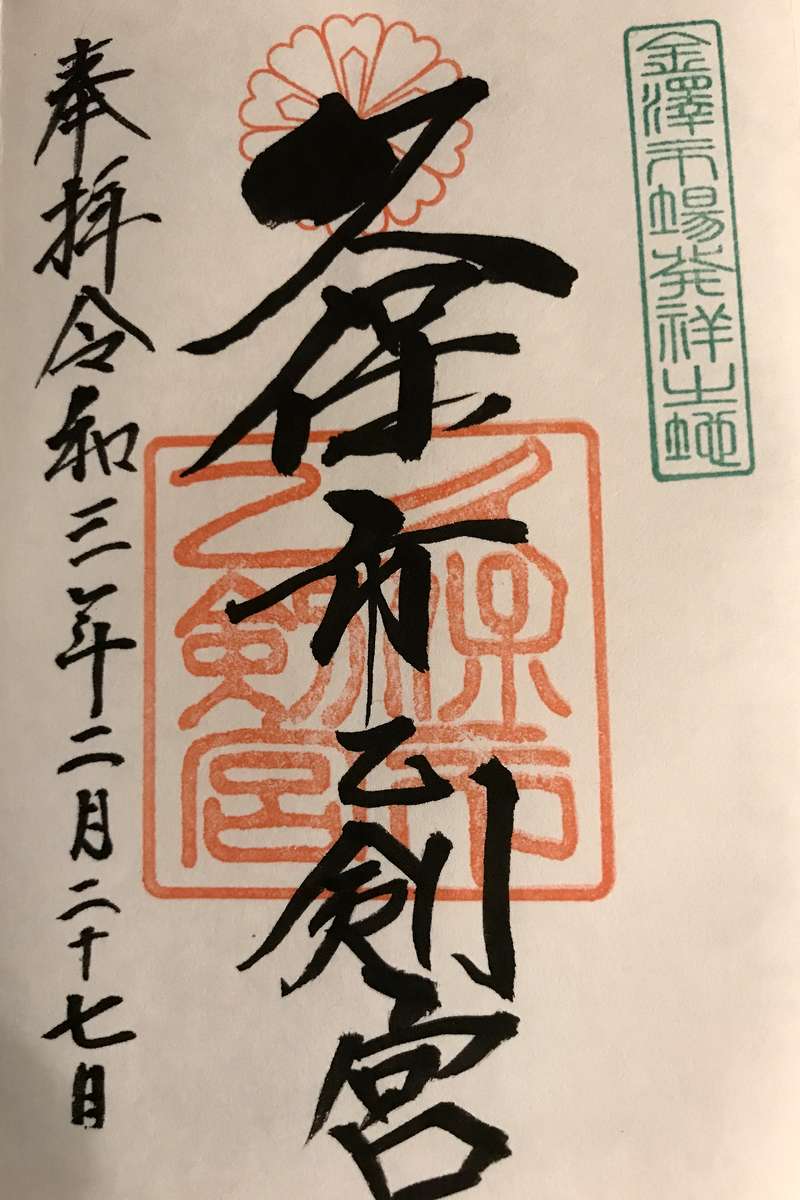 金澤市場発祥之地
久保市乙剣宮
久保市
乙剣宮
奉拝令和三年二月二十七日